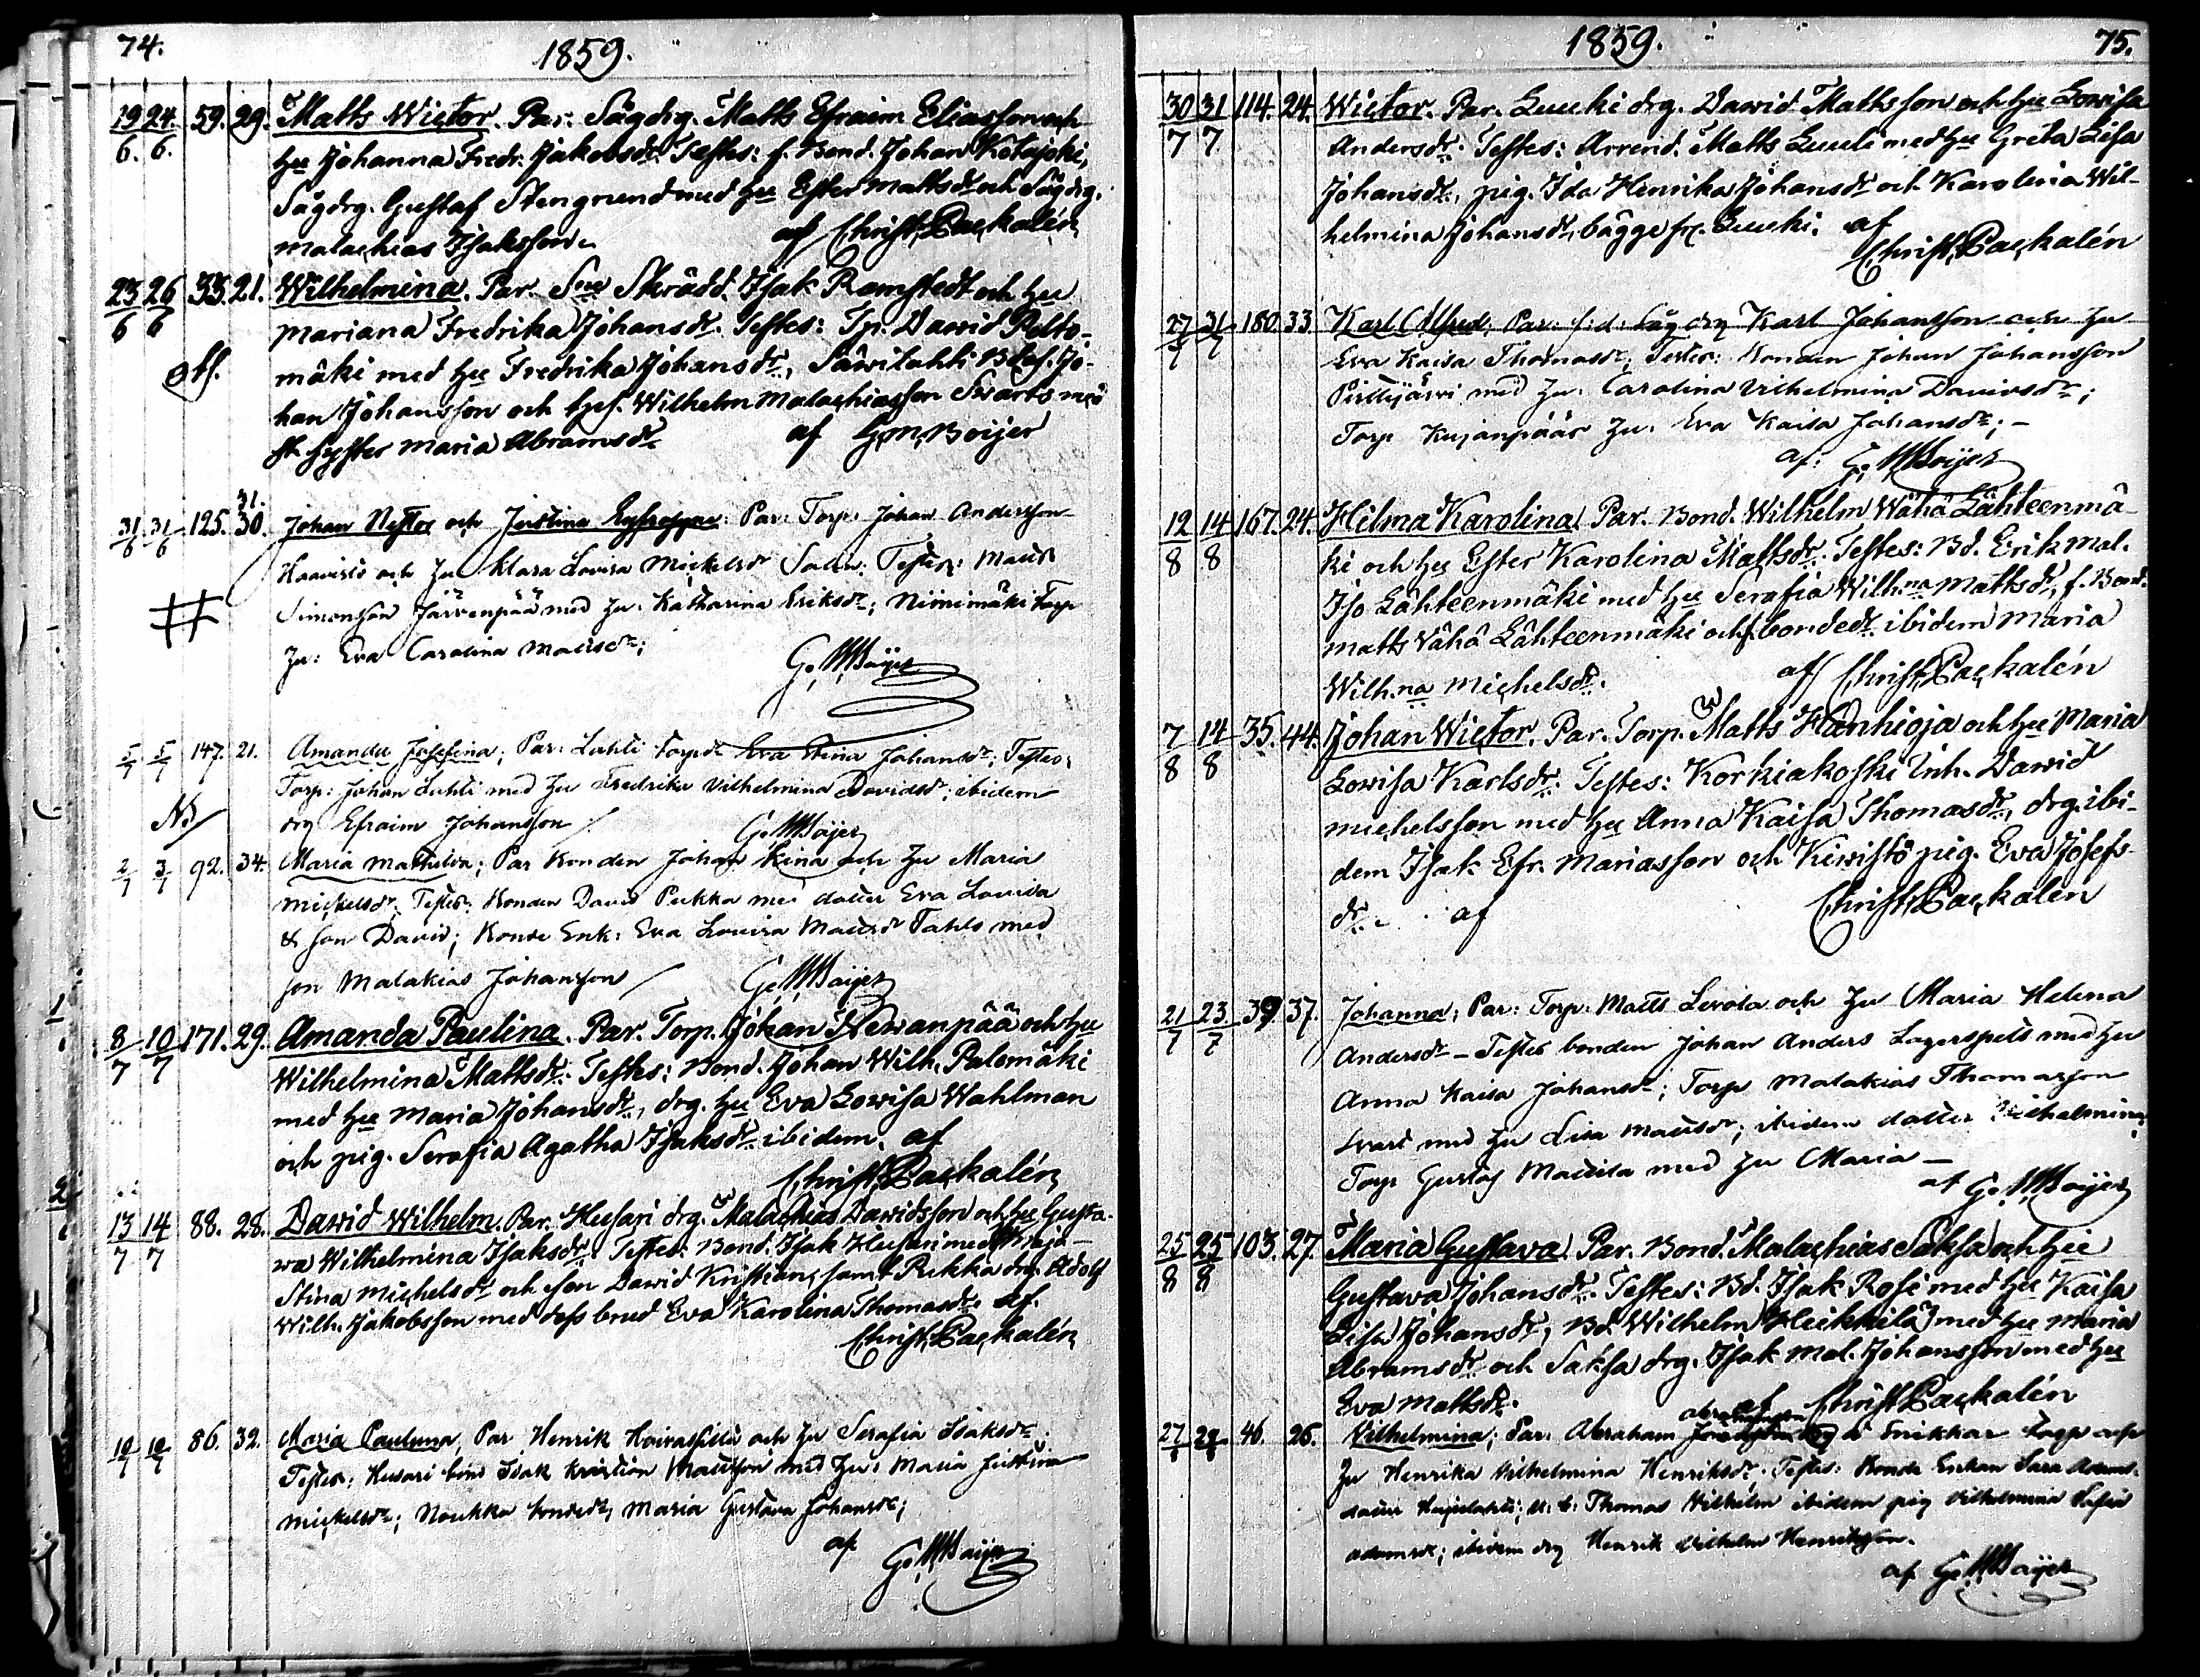 74.
1859.
19/6. 24./6. 59. 29. Matts Wictor. Par. Sågdrg. Matts Efraim Eliasson och
hu Johanna Fredr. Jakobsdr. Testes: f. Bond. Johan Kotajoki,
Sågdrg. Gustaf Stengrund med hu Ester Mattsdr och Sågdrg.
Malachias Isaksson. af Christ. Packalén
23/6 26/6 33. 21. Wilhelmina. Par. Skrädd. Isak Ramstedt och hu
Mariana Fredrika Johansdr. Testes: Tp. Dawid Pelto-
mäki med hu Fredrika Johansdr., Säwilahti Jo-
han Johansson och Wilhelm Malachiasson Swarts med
syster Maria Abramsdr af G. M. Boijer
31.
31/6 31/6 125. 30. Johan Nestor och Justina Par: Torp: Johan Andersson
Haavisto och hu Klara Lovisa Mickelsdr Testes: Matts
Simonsson Järvenpää med hu. Katharina Eriksdr; Niinimäki Torp
hu: Eva Carolina Mattsdr;
G. M. Boijer
5/7 5/7 147. 21. Amanda Josefina; Par: Lahti torpdr Eva Stina Johansdr; Testes:
Torp: Johan Lahti med hu Fredrika Vilhelmina Davidsdr; ibidem
drg Efraim Johansson G. M. Boijer
2/7 3/7 92. 34. Maria Mathilda; Par Bonden Johan Kina och hu Maria
Mickelsdr. Testes: Bonden David Pukka med dotter Eva Lovisa
& son David; Bonde Enk: Eva Lovisa Mattsdr Tahlo med
son Malakias Johansson G. M. Boijer
8/7 10/7 171. 29. Amanda Paulina. Par. Torp. Johan Hewanpää och hu
Wilhelmina Mattsdr. Testes: Bond. Johan Wilh. Palomäki
med hu Maria Johansdr., drg. hu Eva Lowisa Wahlman
och pig. Serafia Agatha Isaksdr. ibidem. af
Christ. Packalén
13/7 14/7 88. 28. Dawid Wilhelm. Par. Husari drg. Malachias Dawidsson och hu Gusta-
wa Wilhelmina Isaksdr. Testes: Bond. Isak Husari med Maja-
Stina Michelsdr och son Dawid Kristian, samt Pukka drg. Adolf
Wilh. Jakobsson med dess brud Eva Karolina Thomasdr. af.
Christ. Packalén
86. 32. Maria Paulina, Par Henrik och hu Serafia Isaksdr.
Testes: Husari bond Isak Kristian Mattsson med hu: Maria Justina
Mickelsdr; Noukka bondedr, Maria Gustava Johansdr;
af G. M. Boijer
1859.
75.
30/7 31/7 114. 24. Wictor. Par. Luuki drg. Dawid Mathsson och hu Lowisa
Andersdr. Testes: Arrend. Matts Luuli med hu Greta Lisa
Johansdr., pig. Ida Henrika Johansdr och Karolina Wil-
helmina Johansdr, bägge fr. Luuki. af
Christ. Packalén
27/7 31/7 180. 33. Karl Alfred; Par: f: d: Såg drg Karl Johansson och hu
Eva Kaisa Thomasdr; Testes: Bonden Johan Johansson
Pirttijärvi med hu. Carolina Vilhelmina Davidsdr;
Torp Kujanpään hu. Eva Kaisa Johansdr; -
af: G. M. Boijer
12/8 14/8 167. 24. Hilma Karolina. Par. Bond. Wilhelm Wähä Lähteenmä-
ki och hu Ester Karolina Mattsdr. Testes: Bd. Erik Mal.
Iso Lähteenmäki med hu Serafia Wilh.na Mattsdr, f. Bond.
Matts Vähä Lähteenmäki och bondedr. ibidem Maria
Wilh.na Michelsdr. af Christ. Packalén
7/8 14/8 35. 44. Johan Wictor. Par. Torp. Matts Hanhioja och hu Maria
Lowisa Karlsdr. Testes: Korkiakoski Inh. Dawid
Michelsson med hu Anna Kaisa Thomasdr, drg. ibi-
dem Isak Efr. Mariasson och Kiwistö pig. Eva Josefs-
dr. af Christ. Packalén
21/7 23/7 39 37. Johanna; Par: Torp: Matts Lerola och hu Maria Helena
Andersdr - Testes bonden Johan Anders Lagerspets med hu
Anna Kaisa Johansdr; Torp Malakias Thomasson
Svart med hu Lisa Mattsdr; ibidem dotter Vilhelmina,
Torp Gustaf Mattila med hu Maria -
af G. M. Boijer
25/8 25/8 103. 27. Maria Gustava. Par. Bond. Malachias Saksa och hu
Gustava Johansdr. Testes: Bd. Isak Rosi med hu Kaisa
Lisa Johansdr, Bd. Wilhelm Heikkilä med hu Maria
Abramsdr och Saksa drg. Isak Mal. Johansson med hu
Eva Mattsdr. af Christ Packalén
46. 26. Vilhelmina; Par. Abraham torp och
hu Henrika Vilhelmina Henriksdr. Testes: Bonde Enkan Sara Adams-
dotter Thomas Wilhelm ibidem pig Vilhelmina Sofia
Adamsdr; ibidem drg Henrik Vilhelm Henriksson.
af G. M. Boijer